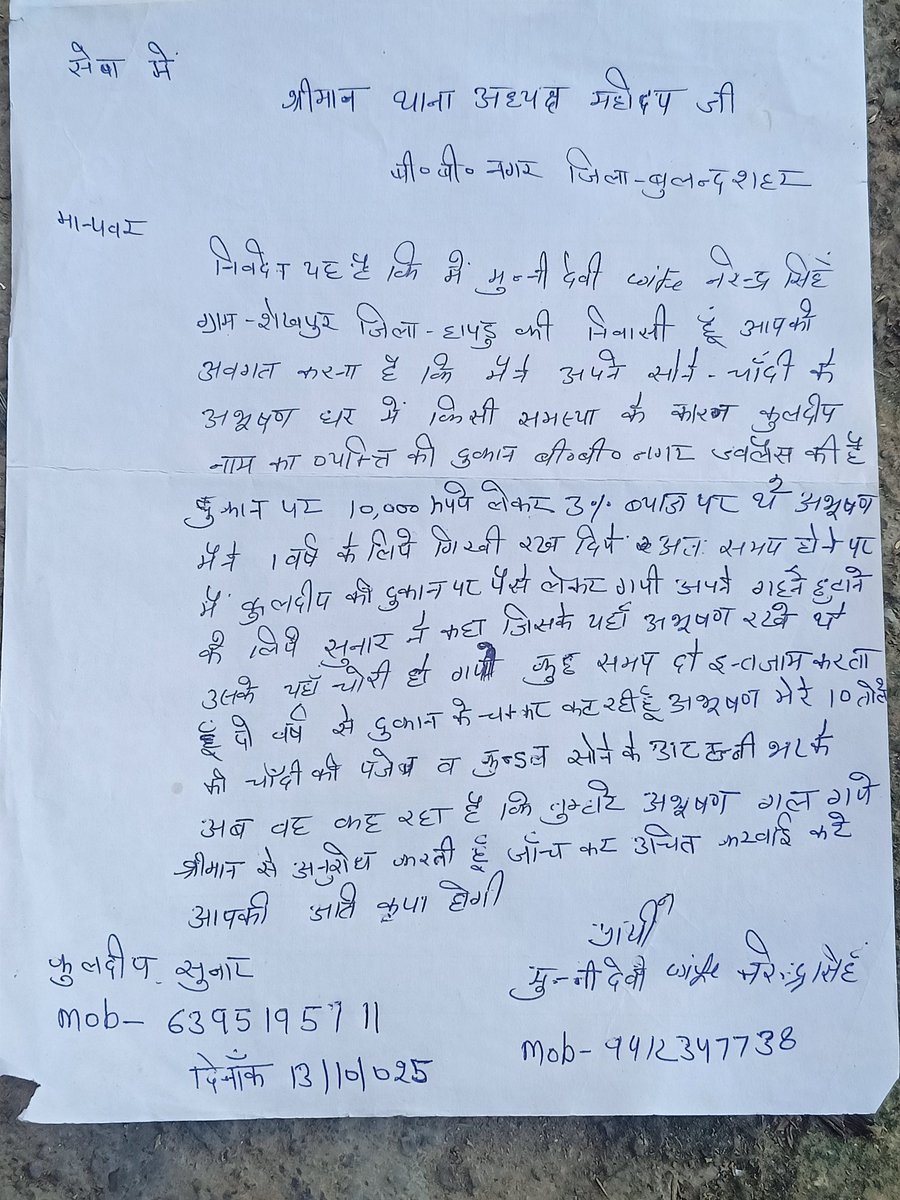 सेवा में
श्रीमान थाना अध्यक्ष महोदय जी
बी०बी० नगर जिला-बुलन्दशहर
मान्यवर
निवेदन यह है कि में मुन्नी देवी wife नरेन्द्र सिहं
ग्राम-शेखपुर जिला-हापुड़ की निवासी हूं आपको
अवगत करना है कि मैंने अपने सोने-चाँदी के
अभूषण घर में किसी समस्या के कारन कुलदीप
नाम का व्यक्ति की दुकान बी०बी० नगर ज्वलैस की है
दुकान पर 10,000 रूपये लेकर 3% ब्याज पर थे अभूषण
मैंने 1 वर्ष के लिये गिरवी रख दिये अतः समय होने पर
में कुलदीप की दुकान पर पैसे लेकर गयी अपने गहने छुटाने
के लिये सुनार ने कहा जिसके यहाँ अभूषण रखे थे
उसके यहाँ चोरी हो गयी कुछ समय दो इन्तजाम करता
हूँ दो वर्ष से दुकान के चक्कर कट रही हूँ अभूषण मेरे 10 तोले
की चाँदी की पजेब व कुन्डल सोने के भरके
अब वह कह रहा है कि तुम्हारे अभूषण गल गये
श्रीमान से अनुरोध करती हूँ जाँच कर उचित करवाई करे
आपकी अति कृपा होगी
प्रार्थी
कुलदीप सुनार
मुन्नी देवी wife नरेन्द्र सिहं
mob- 6395195711
mob- 9412347738
दिनाँक 13/10/025